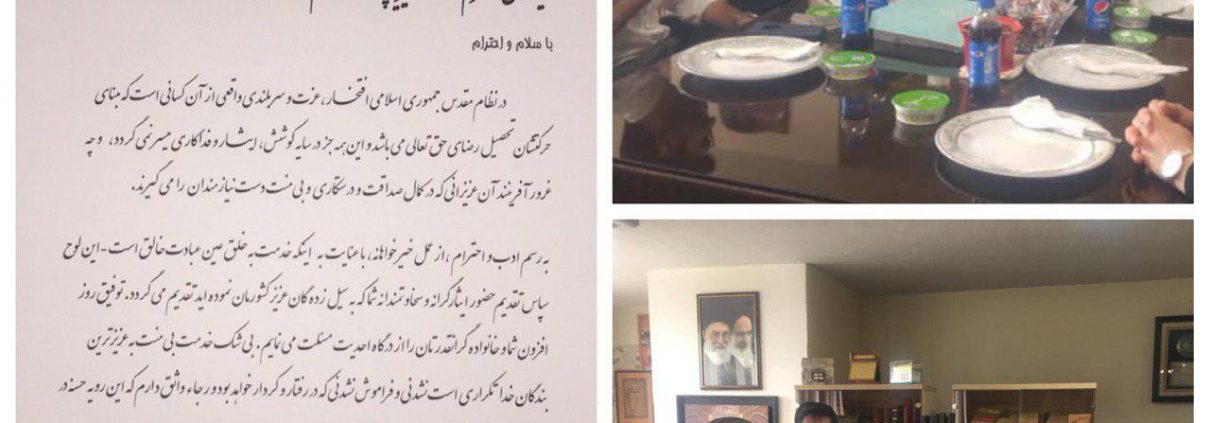 با سلام و احترام
در نظام مقدس جمهوری اسلامی افتخار، عزت و سربلندی واقعی از آن کسانی است که مبنای
حرکتشان تحصیل رضای حق تعالی می باشد و این همه جز در سایه کوشش، ایثار و فداکاری میسر نمی گردد، و چه
غرور آفرینند آن عزیزانی که در کمال صداقت و درستکاری و بی منت دست نیازمندان را می گیرند.
به رسم ادب و احترام، از عمل خیرخواهانه، با عنایت به اینکه خدمت به خلق عین عبادت خالق است-این لوح
سپاس تقدیم حضور ایثارگرانه و سخاوتمندانه شما که به سیل زده گان عزیز کشورمان نموده اید تقدیم می گردد. توفیق روز
افزون شما و خانواده گرانقدرتان را از درگاه احدیت مسئلت می نمایم. بی شک خدمت بی منت به عزیزترین
بندگان خدا تکراری است نشدنی و فراموش نشدنی که در رفتار و کردار خواهد بود و رجاء واثق دارم که این رویه حسنه در
pepsi